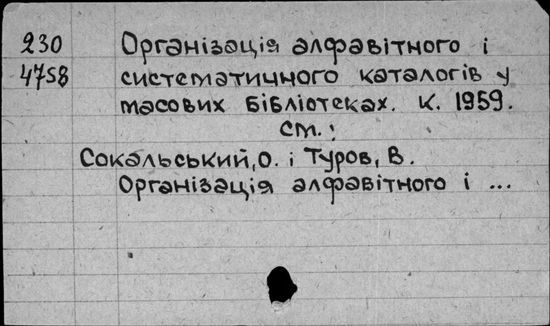 230 Організація алфавітного і
4758 систематичного каталогів у
масових бібліотеках. К. 1959.
см.:
Сокальський, О. і Туров, В.
Організація алфавітного і ...